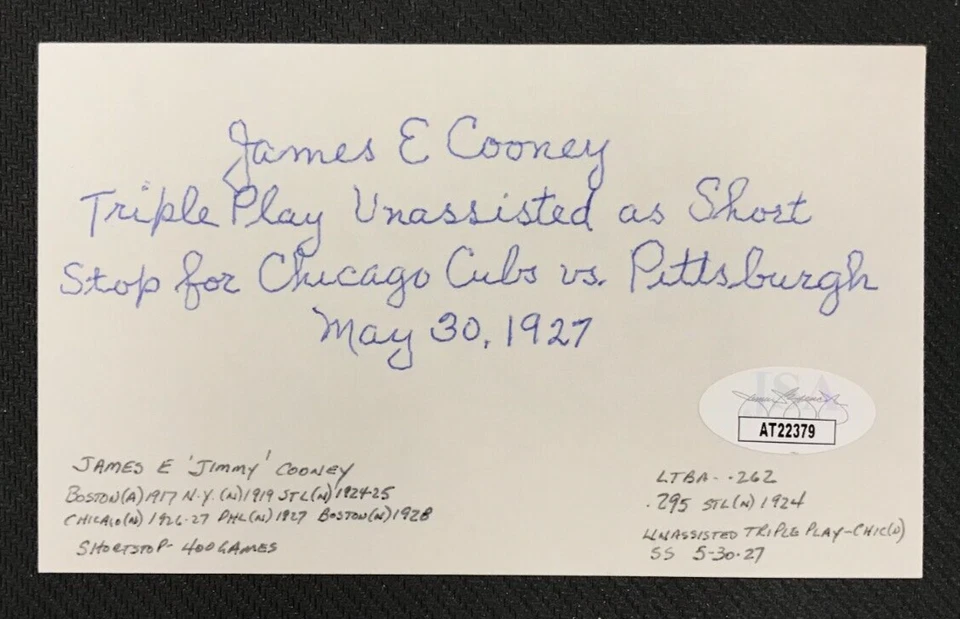 James E Cooney
Triple Play Unassisted as Short
Stop for Chicago Cubs vs. Pittsburgh
May 30, 1927
JSA
AT22379
JAMES E 'JIMMY' COONEY
BOSTON(A) 1917 N.Y. (N) 1919 STL(N) 1924-25
CHICAGO(N) 1926-27 PHL(N) 1927 BOSTON(N) 1928
SHORTSTOP- 400 GAMES
LTBA- .262
.295 STL(N) 1924
UNASSISTED TRIPLE PLAY-CHIC(N)
SS 5-30-27